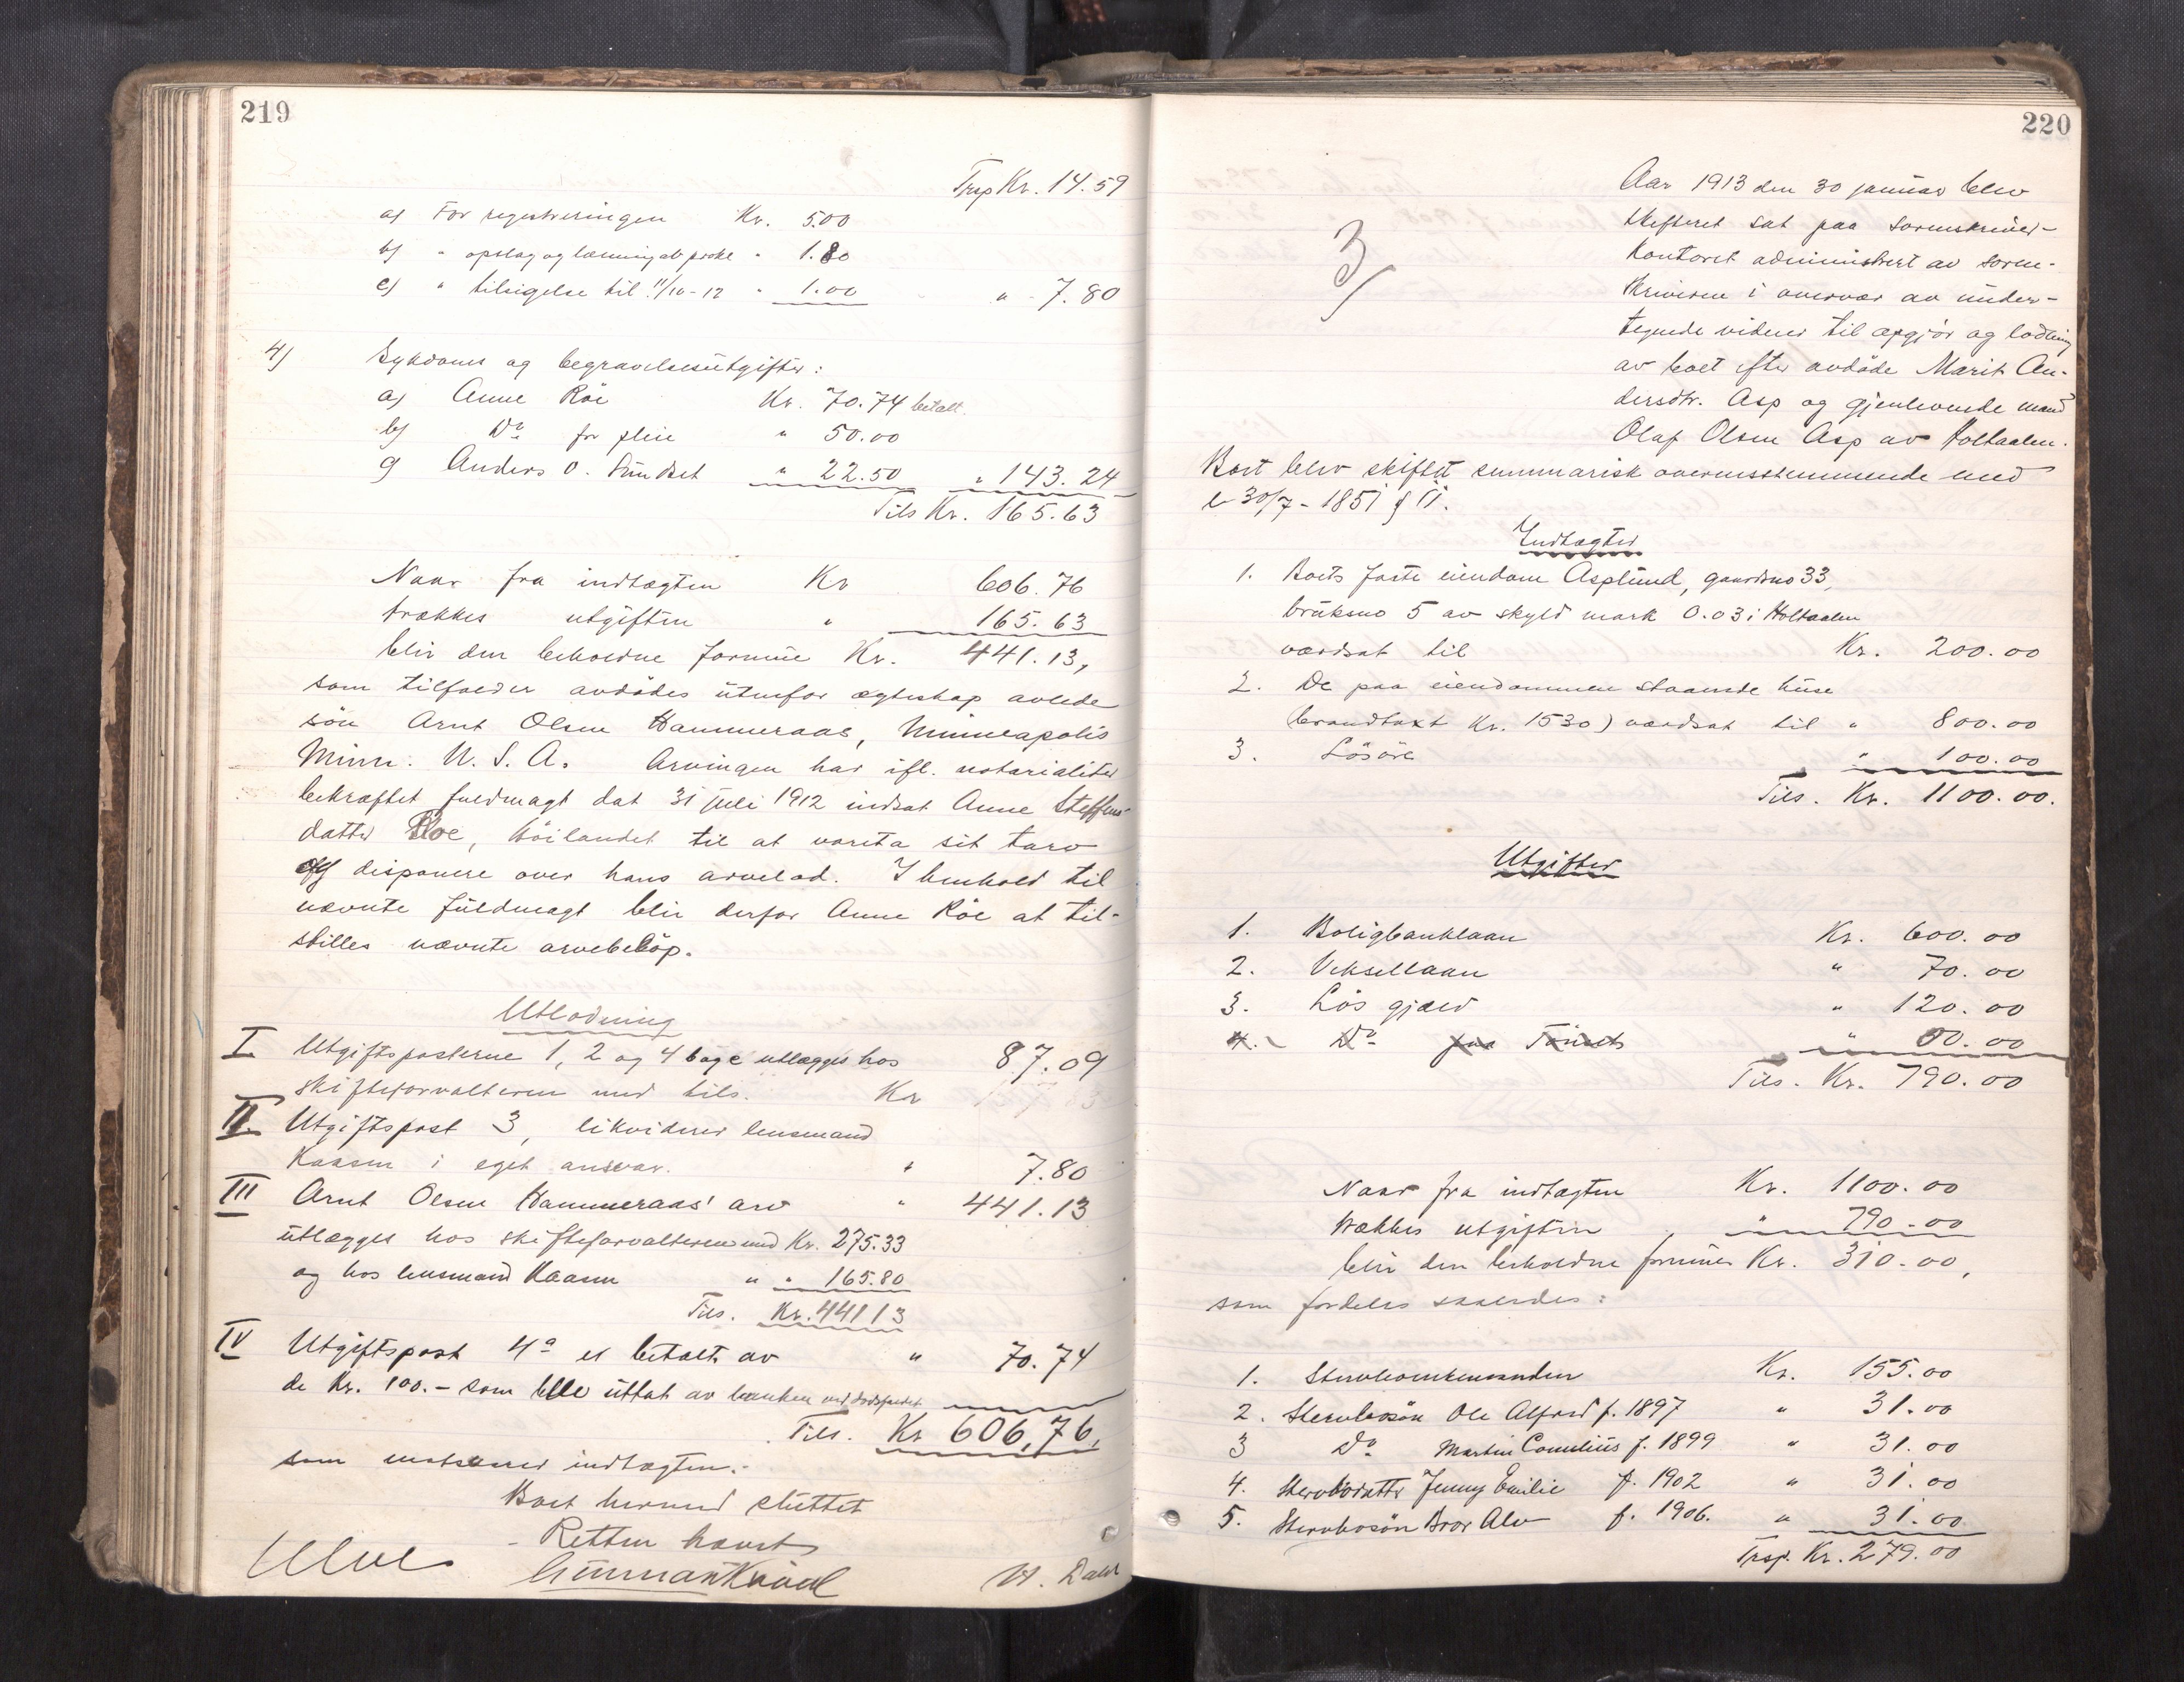 219
Trsp Kr. 14.59
a) For registreringen Kr. 5.00
b) " opslag og læsning av prokl " 1.80
c) " tilsigelse til 11/10-12 " 1.00 " 7.80
4) Sykdoms og begravelsesutgifter:
a) Anne Röe Kr. 70.74 betalt.
b) Do for pleie " 50.00
c) Anders O. Sundset " 22.50 " 143.24
Tils Kr. 165.63
Naar fra indtægten Kr 606.76
trækkes utgiften " 165.63
blir den beholdne formue Kr. 441.13,
som tilfalder avdödes utenfor ægteskap avlede
sön Arnt Olsen Hammeraas, Minneapolis
Minn. U.S.A. Arvingen har ifl. notarialiter
bekræftet fuldmagt dat 31 juli 1912 indsat Anne Steffens-
datter Röe, Höilandet til at vareta sit tarv
og disponere over hans arvelod. I henhold til
nævnte fuldmagt blir derfor Anne Röe at til-
stilles nævnte arvebelöp.
Utlodning
I Utgiftsposterne 1, 2 og 4 b og c utlægges hos 87.09
skifteforvalteren med tils. Kr
II. Utgiftspost 3, likviderer lensmand
Kaasen i eget ansvar. " 7.80
III Arnt Olsen Hammeraas' arv " 441.13
utlægges hos skifteforvalteren med Kr. 275.33
og hos lensmand Kaasen " " 165.80
Tils. Kr. 441 13
IV Utgiftspost 4a er betalt av " 70.74
de Kr. 100.- som blev uttat av banken ved dødsfaldet
Tils. Kr 606,76,
som motsvarer indtægten.-
Boet hermed sluttet
- Retten hævet
220
Aar 1913 den 30 januar blev
skifteret sat paa sorenskriver-
kontoret administrert av soren-
skriveren i overvær av under-
tegnede vidner til opgjör og lodning
av boet efter avdöde Marit An-
dersdtr. Asp og gjenlevende mand
Olaf Olsen Asp av Holtaalen.
3/
Boet blev skiftet summarisk overensstemmende med
l 30/7 - 1851 § 11.
Indtægter
1. Boets faste eiendom Asplund, gaardsno 33,
bruksno 5 av skyld mark 0.03 i Holtaalen
værdsat til Kr. 200.00
2. De paa eiendommen staaende huse
brandtaxt Kr. 1530) værdsat til " 800.00
3. Lösöre " 100.00
Tils. Kr. 1100.00.
Utgifter
1. Boligbanklaan Kr. 600.00
2. Veksellaan " 70.00
3. Lös gjæld " 120.00
4. Do paa Tönsets " 00.00
Tils. Kr. 790.00
Naar fra indtægten Kr. 1100.00
trækkes utgiften " 790-00
blir den beholdne formue Kr. 310-00,
som fordeles saaledes:
1. Stervboenkemanden Kr. 155.00
2. Stervbosön Ole Alfred f. 1897 " 31.00
3 Do Martin Cornelius f. 1899 " 31.00
4. Stervbodatter Jenny Emilie f. 1902 " 31.00
5. Stervbosön Bror Alv f. 1906. " 31.00
Trsp. Kr. 279.00